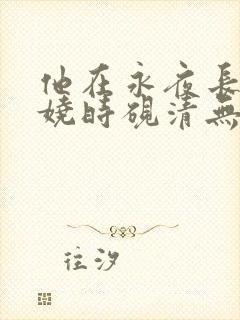 他在永夜長
嬈時硯清無
往汐